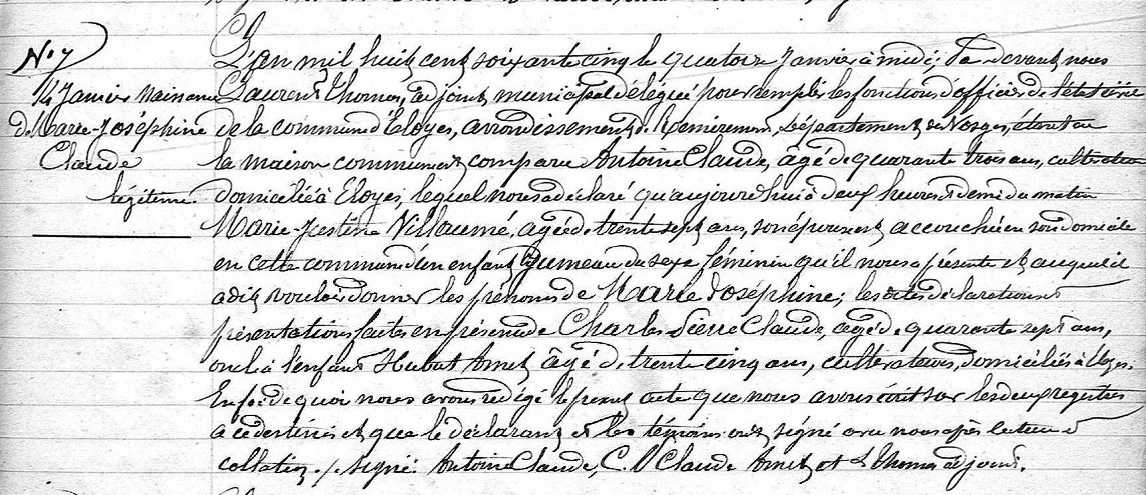 N° 7
14 Janvier Naissance
de Marie-Joséphine
Claude
légitime
L'an mil huit cent soixante cinq le quatorze Janvier à midi, Par devant nous
Laurent Thomas, adjoint municipal délégué pour remplir les fonctions d'officier de l'état civil
de la commune d'Eloyes, arrondissement de Remiremont, Département des Vosges, étant en
la maison commune est comparu Antoine Claude, âgé de quarante trois ans, cultivateur
domicilié à Eloyes, lequel nous a déclaré qu'aujourd'hui à deux heures et demi du matin
Marie-Justine Villaumé, agée de trente sept ans, son épouse est accouchée en son domicile
en cette commune d'un enfant Jumeau du sexe féminin qu'il nous a présenté et auquel il
a dit vouloir donner les prénoms de Marie Joséphine; les dites déclaration et
présentation faites en présence de Charles Pierre Claude, agé de quarante sept ans,
oncle à l'enfant Hubert Amet âgé de trente cinq ans, cultivateurs, domiciliés à Eloyes.
En foi de quoi nous avons rédigé le present acte que nous avons écrit sur les deux registres
à ce destinés et que le déclarant et les témoins ont signé avec nous après lecture et
collation. / signé: Antoine Claude, C. P Claude Amet et L Thomas adjoint.